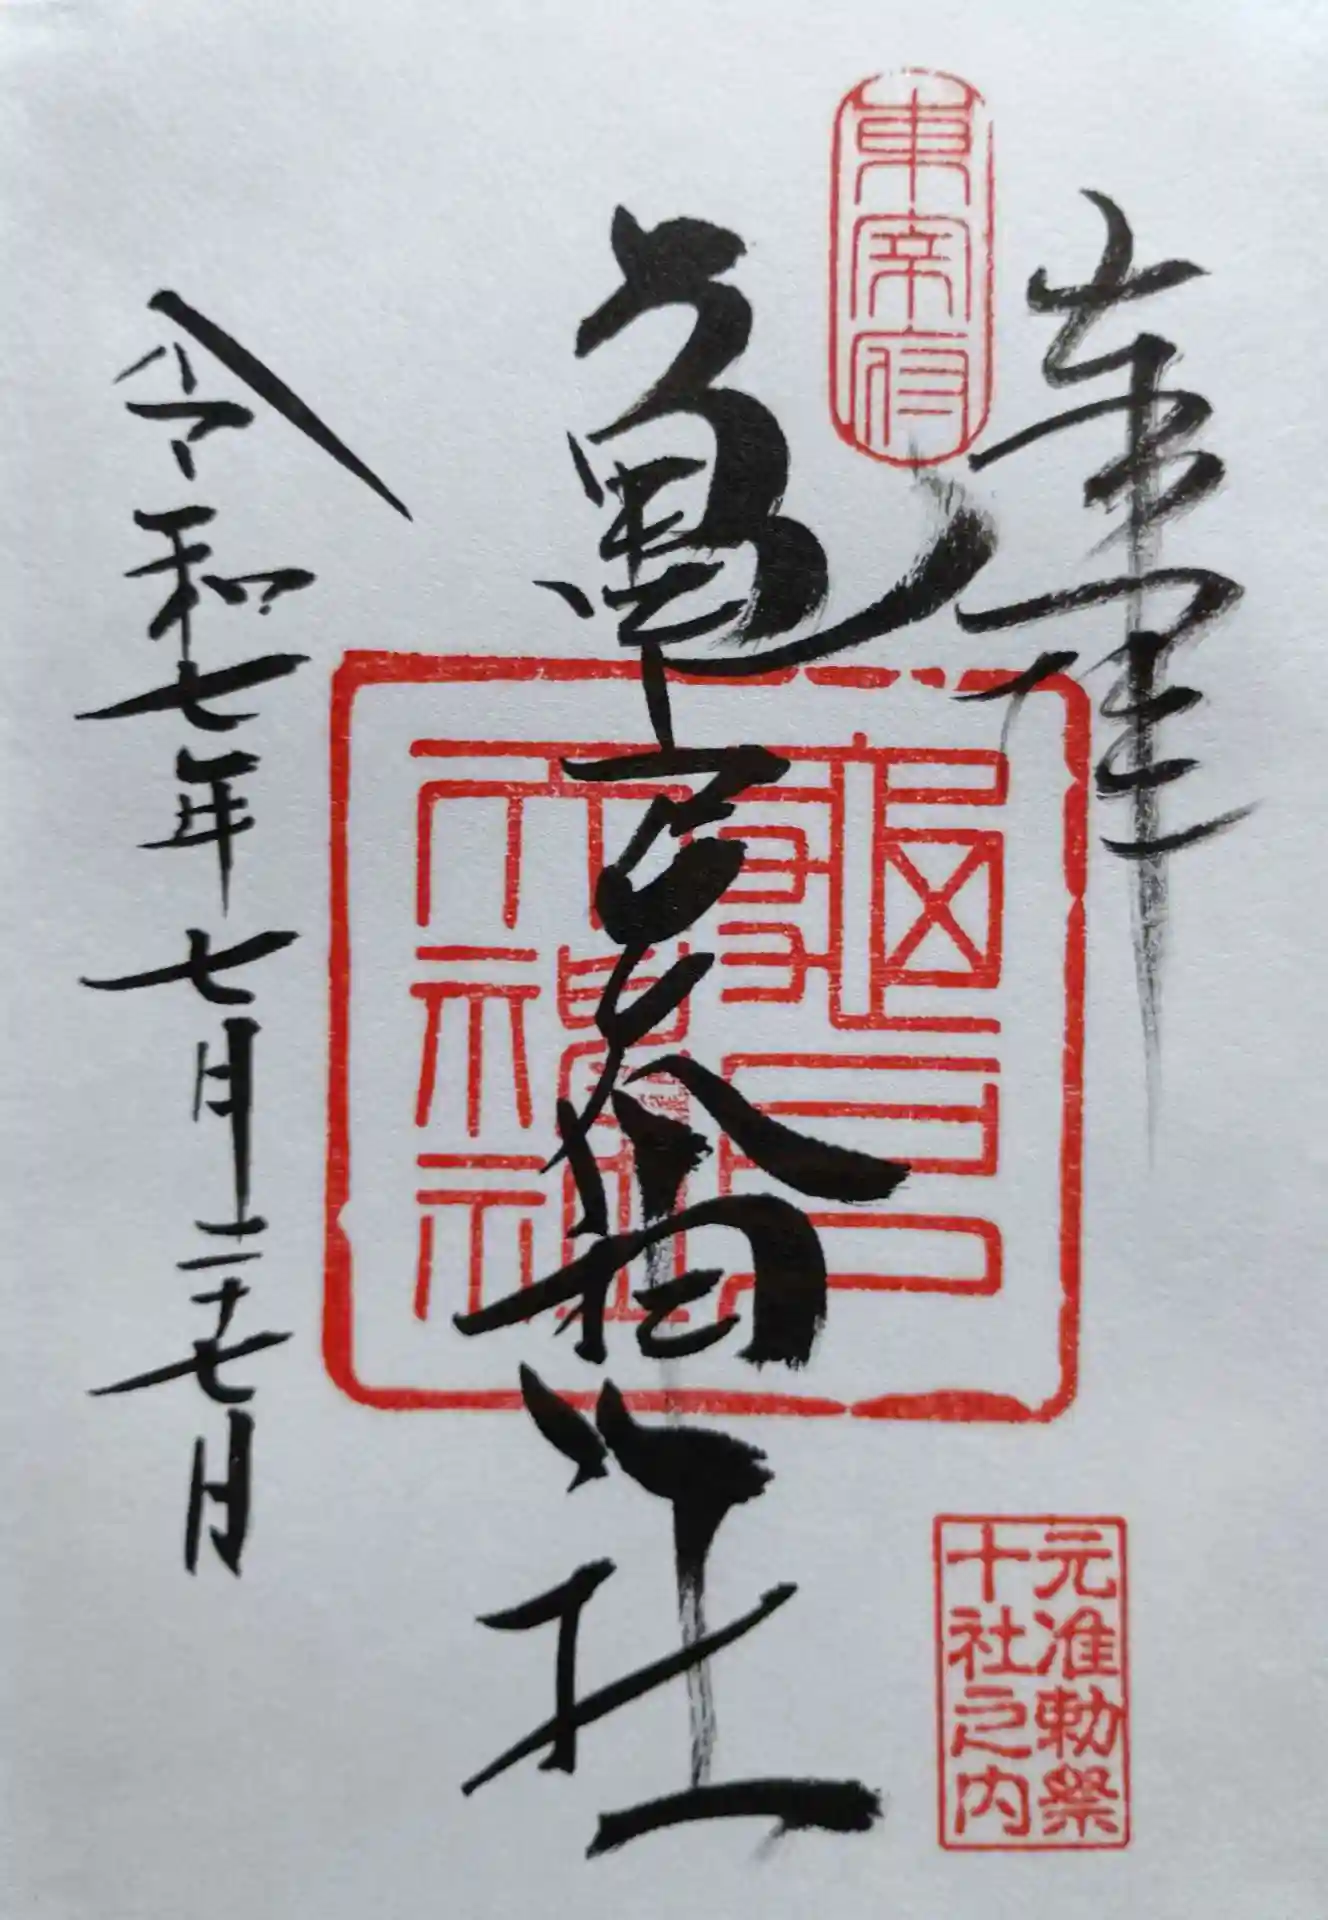 奉拝
東宰府
亀戸天神社
龜戸
天神社
令和七年七月二十七日
元准勅祭
十社之内